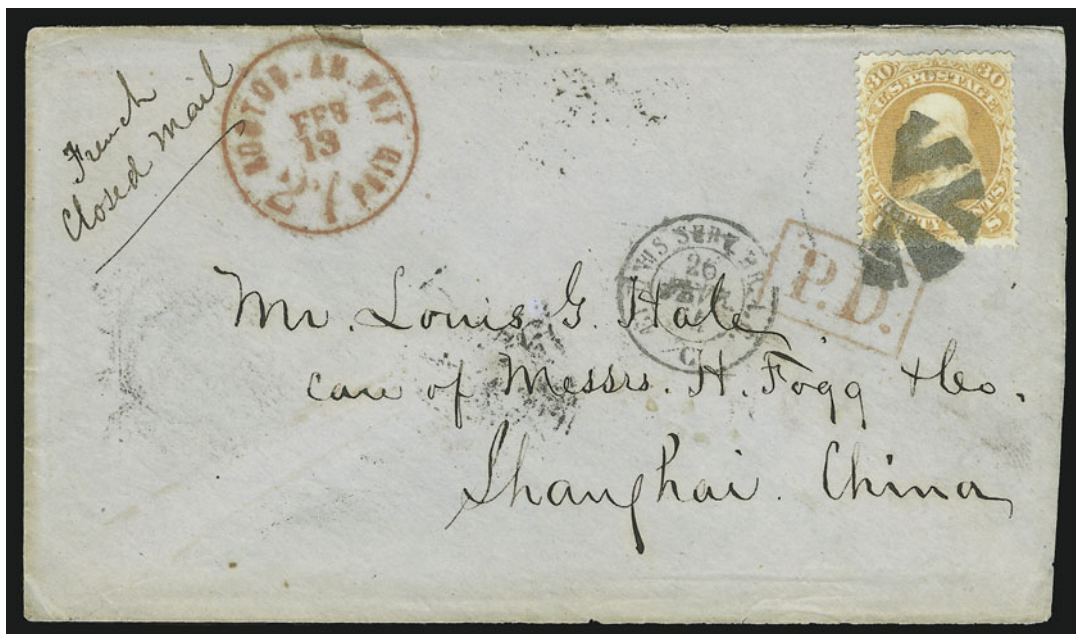 French
Closed Mail
BOSTON · AM. PKT
FEB
13
12
PAID
30 30
U.S. POSTAGE
26
P.D.
Mr. Louis G. Hale
care of Messrs. H. Fogg & Co.
Shanghai. China